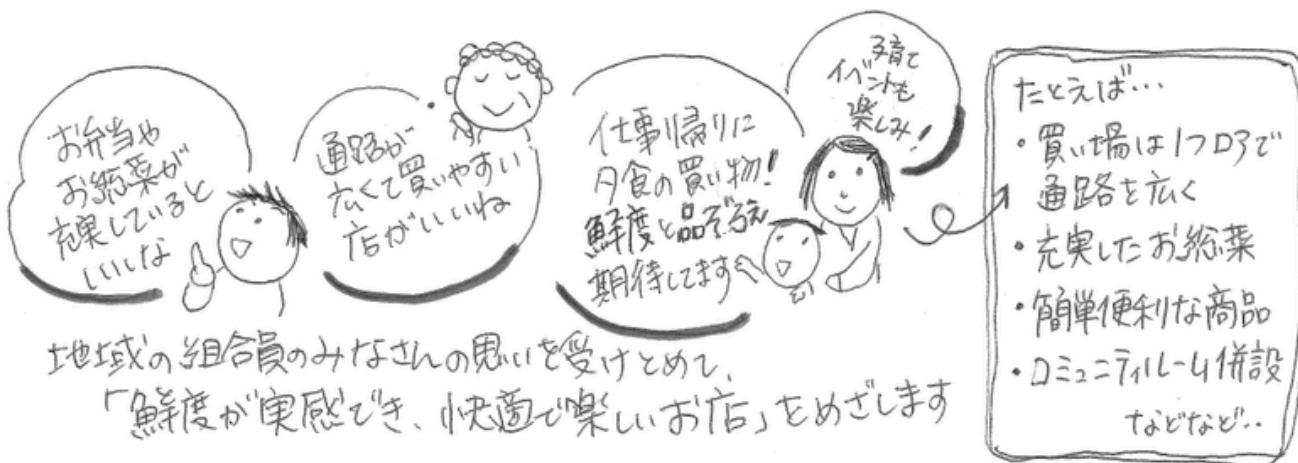 お弁当や
お総菜が
充実していると
いいな
通路が
広くて買いやすい
店がいいね
仕事帰りに
夕食の買い物!
鮮度と品ぞろえ
期待してます
子育て
イベントも
楽しみ!
たとえば…
・買い場は1フロアで
通路を広く
・充実したお総菜
・簡単便利な商品
・コミュニティルーム併設
などなど‥
地域の組合員のみなさんの思いを受けとめて、
「鮮度が実感でき、快適で楽しいお店」をめざします